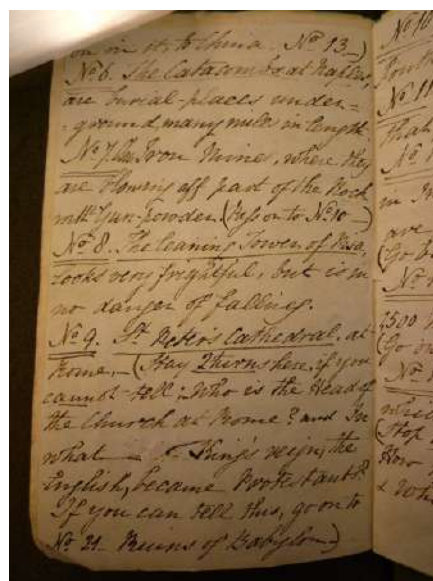 on in it, to China. No 13.)
No 6. The Catacombs at Naples,
are burial-places under=
=ground, many miles in length.
No 7. An Iron Mine, where they
are blowing off part of the Rock
with Gun-powder. (Pass on to No 10.)
No 8. The leaning Tower of Pisa,
looks very frightful, but is in
no danger of falling.
No 9. St Peter's Cathedral, at
Rome. (Stay 2 turns here, if you
cannot tell: Who is the Head of
the Church at Rome? and In
what King's reign, the
English, became Protestants?
If you can tell this, go on to
No 21. Ruins of Babylon)
No 10
No 11
that
in
are
(Go
2500
(Go on
(Stop
How
& Who